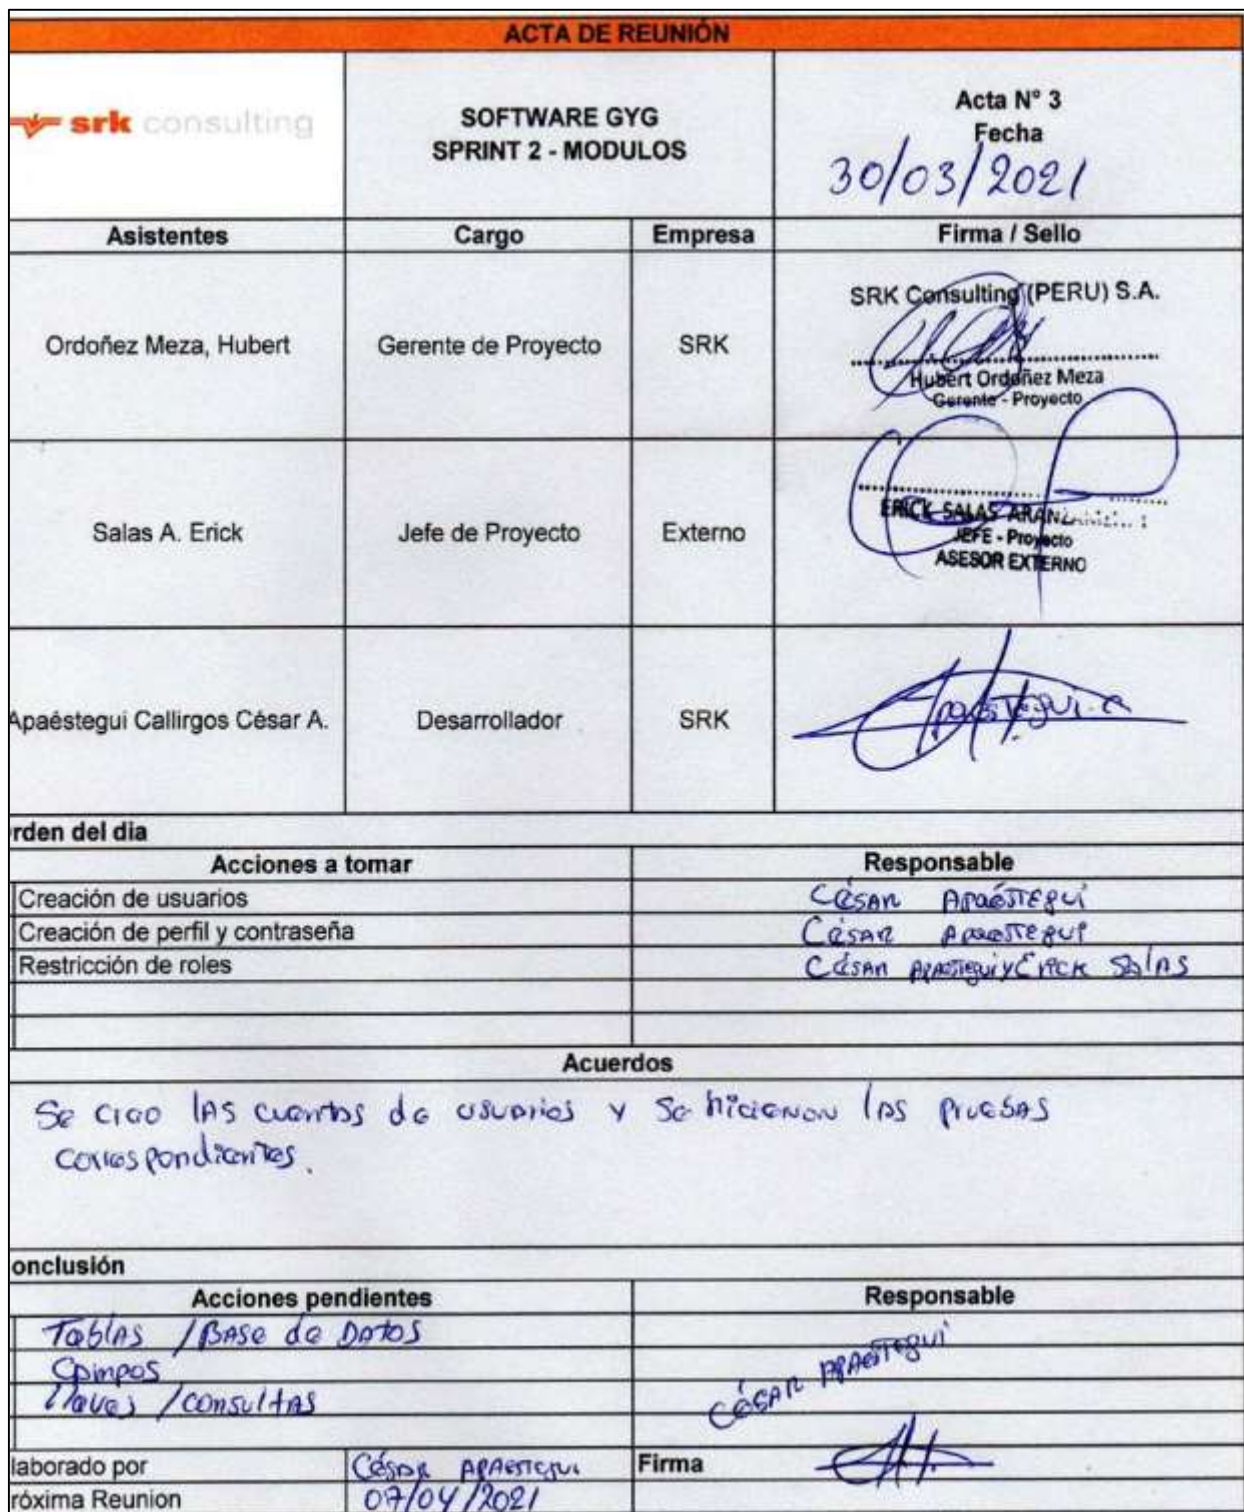 ACTA DE REUNIÓN
srk consulting
SOFTWARE GYG
SPRINT 2 - MODULOS
Acta N° 3
Fecha
30/03/2021
Asistentes Cargo Empresa Firma / Sello
Ordoñez Meza, Hubert Gerente de Proyecto SRK
SRK Consulting (PERU) S.A.
Hubert Ordoñez Meza
Gerente - Proyecto
Salas A. Erick Jefe de Proyecto Externo
ERICK SALAS
JEFE - Proyecto
ASESOR EXTERNO
Apaéstegui Callirgos César A. Desarrollador SRK
rden del dia
Acciones a tomar Responsable
Creación de usuarios César Apaéstegui
Creación de perfil y contraseña César Apaestegui
Restricción de roles César Apaestegui y Erick Salas
Acuerdos
Se creo las cuentas de usuarios y se hicieron las pruebas
correspondientes.
onclusión
Acciones pendientes Responsable
Tablas / Base de Datos
Campos
llaves / consultas
César Apaestegui
laborado por César Apaestegui Firma
róxima Reunion 07/04/2021